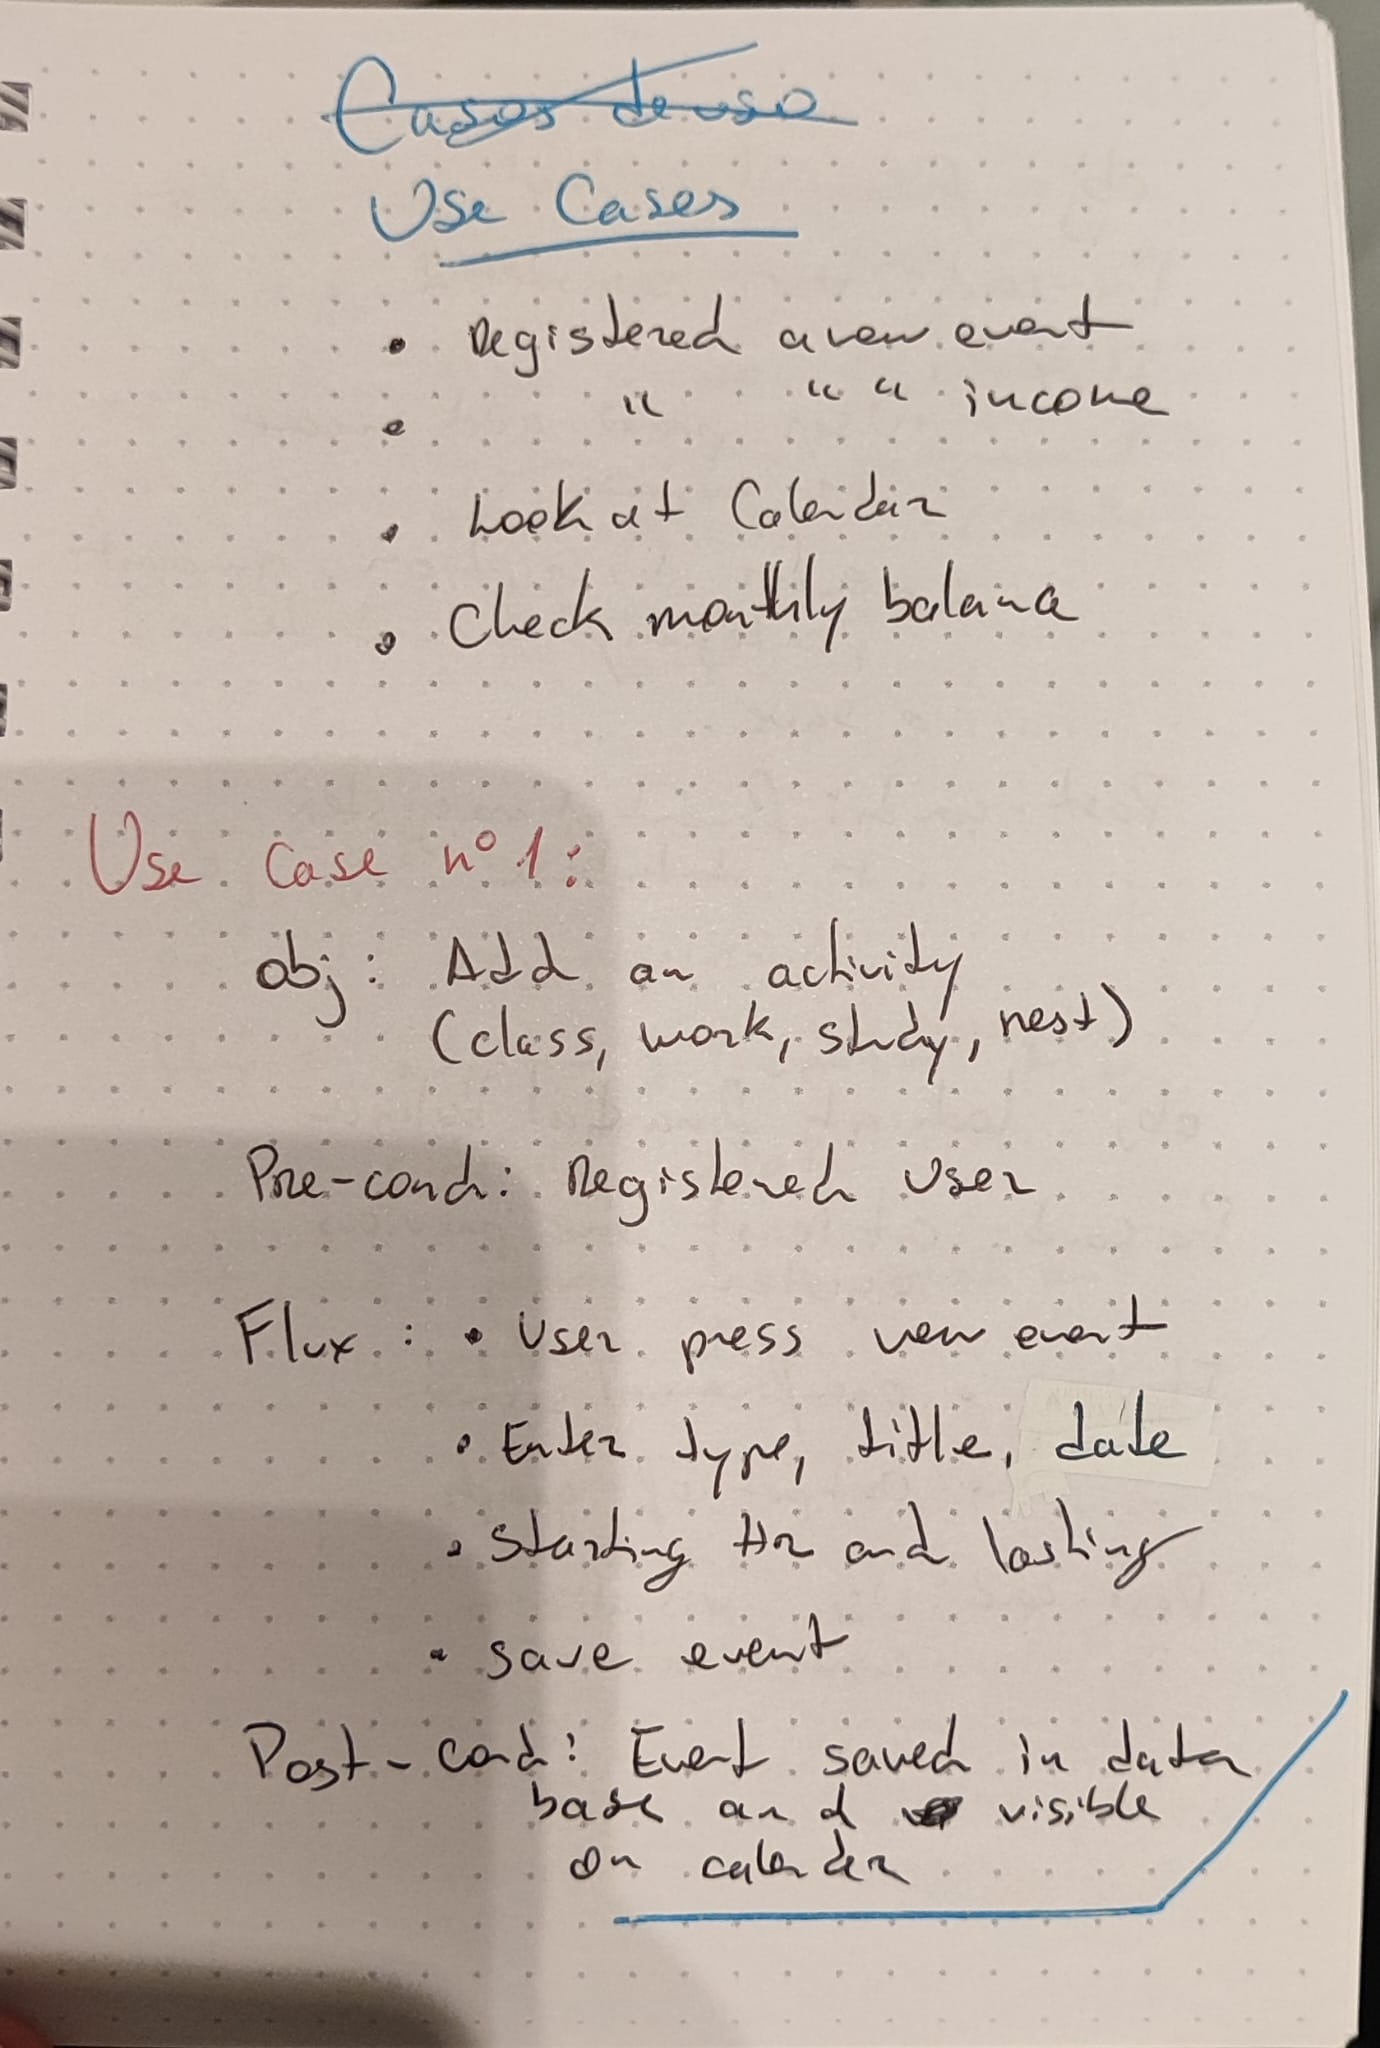 Casos de uso
Use Cases
• Registered a new event
• " " " income
• Look at Calendar
• Check monthly balance
Use Case nº1:
obj: Add an activity
(class, work, study, rest)
Pre-cond: Registered User
Flux: • User press new event
• Enter type, title, date
• Starting Hr and lasting
• save event
Post-cond: Event saved in data
base and visible
on calendar